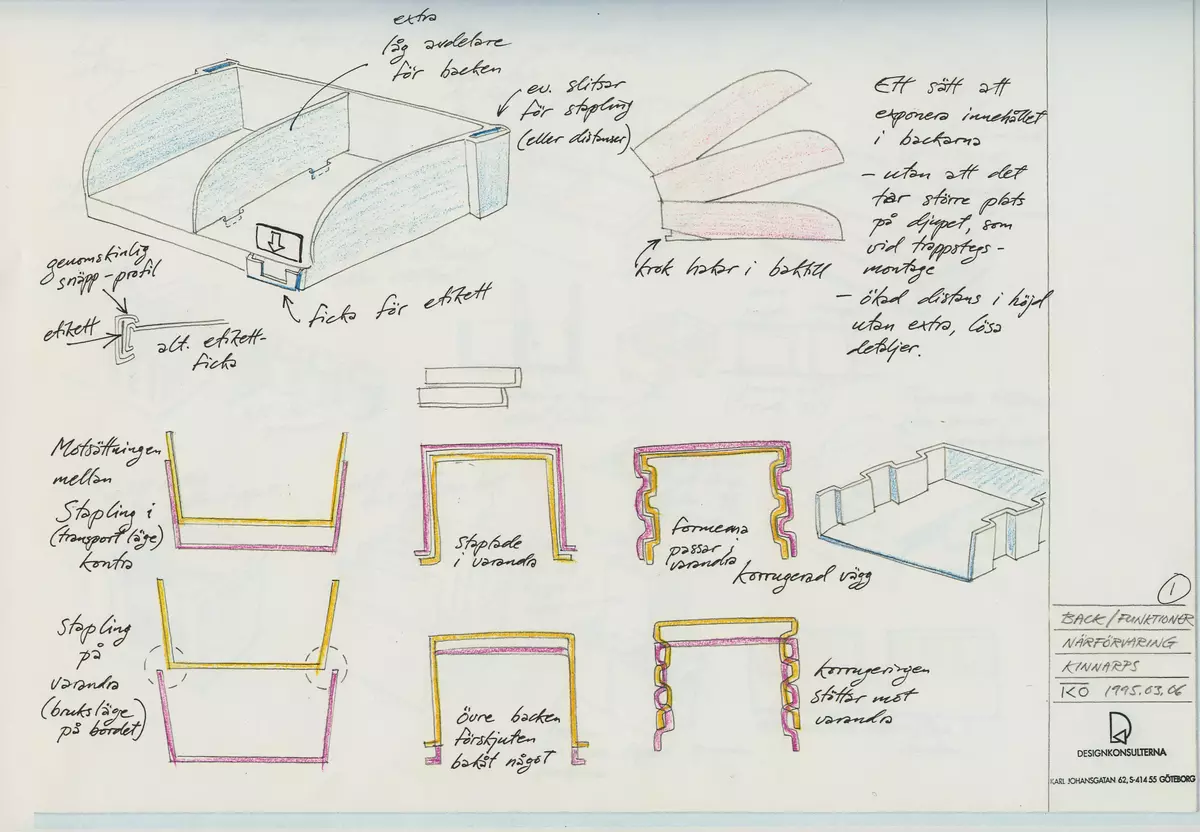 extra
låg avdelare
för backen
ev. slitsar
för stapling
(eller distanser)
genomskinlig
snäpp-profil
etikett
alt. etikett-
ficka
ficka för etikett
krok hakar i baktill
Ett sätt att
exponera innehållet
i backarna
- utan att det
tar större plats
på djupet, som
vid trappstegs-
montage
- ökad distans i höjd
utan extra, lösa
detaljer.
Motsättningen
mellan
Stapling i
(transportläge)
kontra
Stapling
på
varandra
(bruksläge
på bordet)
Staplade
i varandra
övre backen
förskjuten
bakåt något
formerna
passar i
varandra
korrugerad vägg
korrugeringen
stöttar mot
varandra
1
BACK/FUNKTIONER
NÄRFÖRVARING
KINNARPS
KO 1995.03.06
DESIGNKONSULTERNA
KARL JOHANSGATAN 62, S-414 55 GÖTEBORG